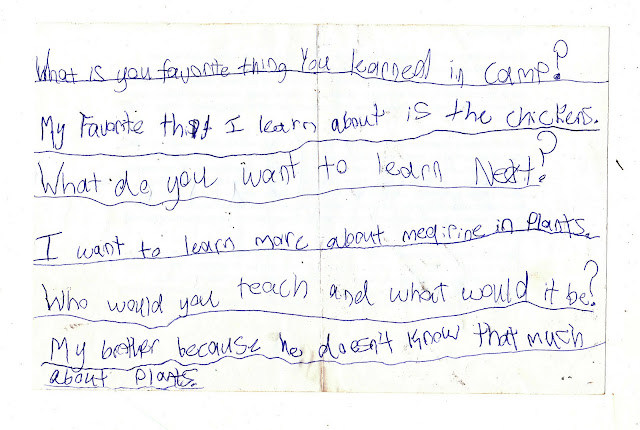 What is you favorite thing You learned in camp?
My Favorite I learn about is the chickens.
What do you want to learn Next?
I want to learn more about medirine in Plants.
Who would you teach and what would it be?
My brother because he doesn't know that much
about Plants.